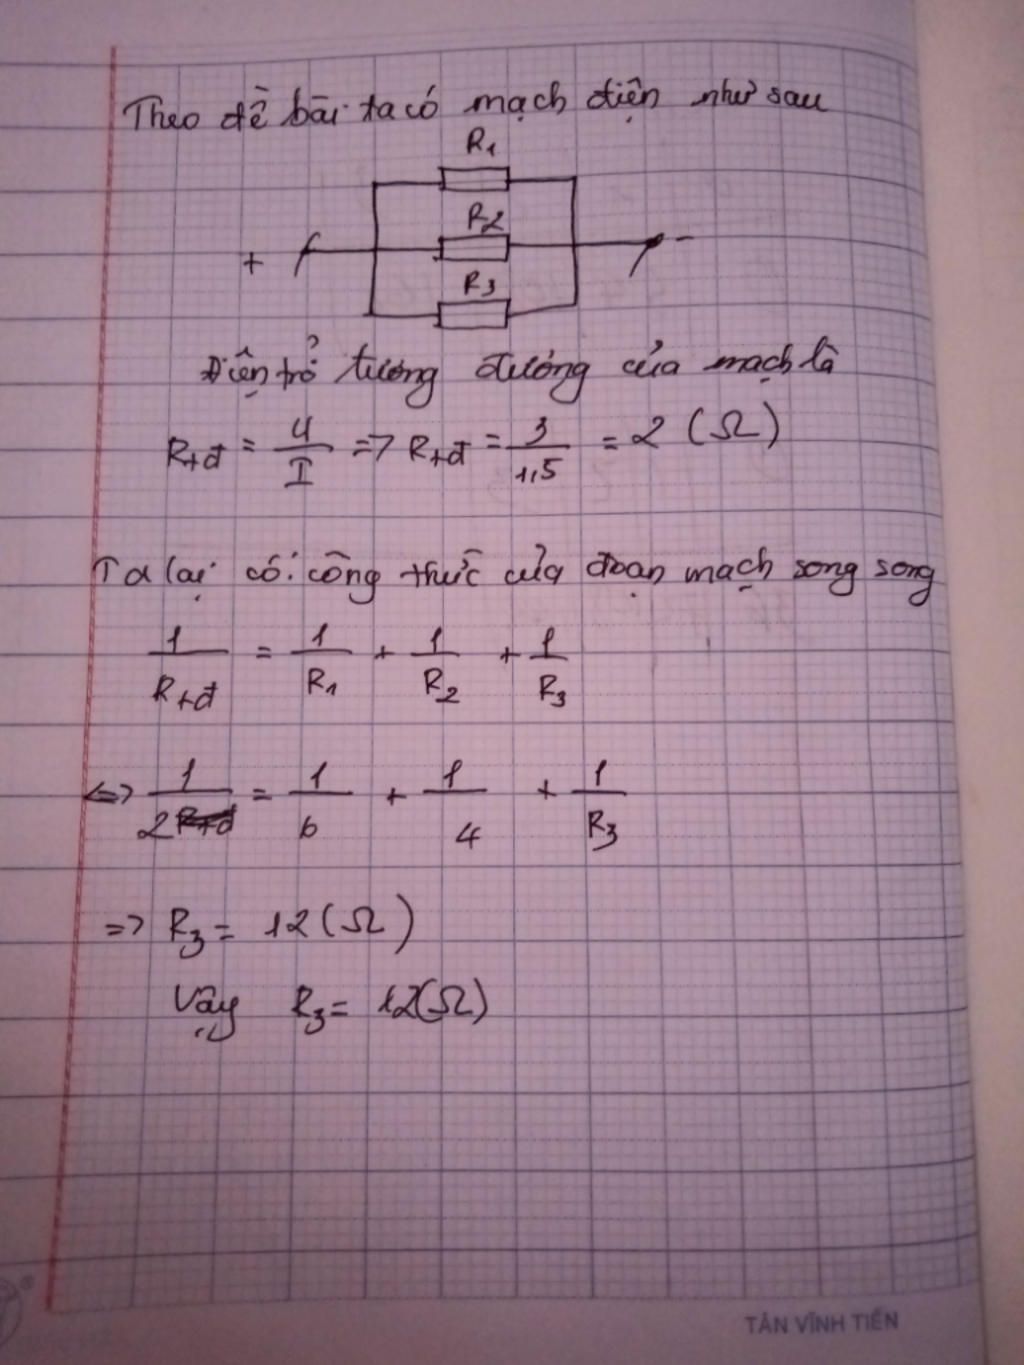 Theo đề bài ta có mạch điện như sau
R1
R2
+ -
R3
Điện trở tương đương của mạch là
Rtđ = U/I => Rtđ = 3/1,5 = 2 (Ω)
Ta lại có: công thức của đoạn mạch song song
1/Rtđ = 1/R1 + 1/R2 + 1/R3
<=> 1/2 = 1/6 + 1/4 + 1/R3
=> R3 = 12 (Ω)
Vậy R3 = 12(Ω)
TÂN VĨNH TIẾN